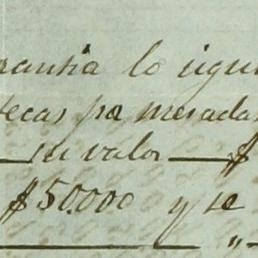 rantia lo sigui
tecas por mesadas
su valor — $
$50.000 y se
"